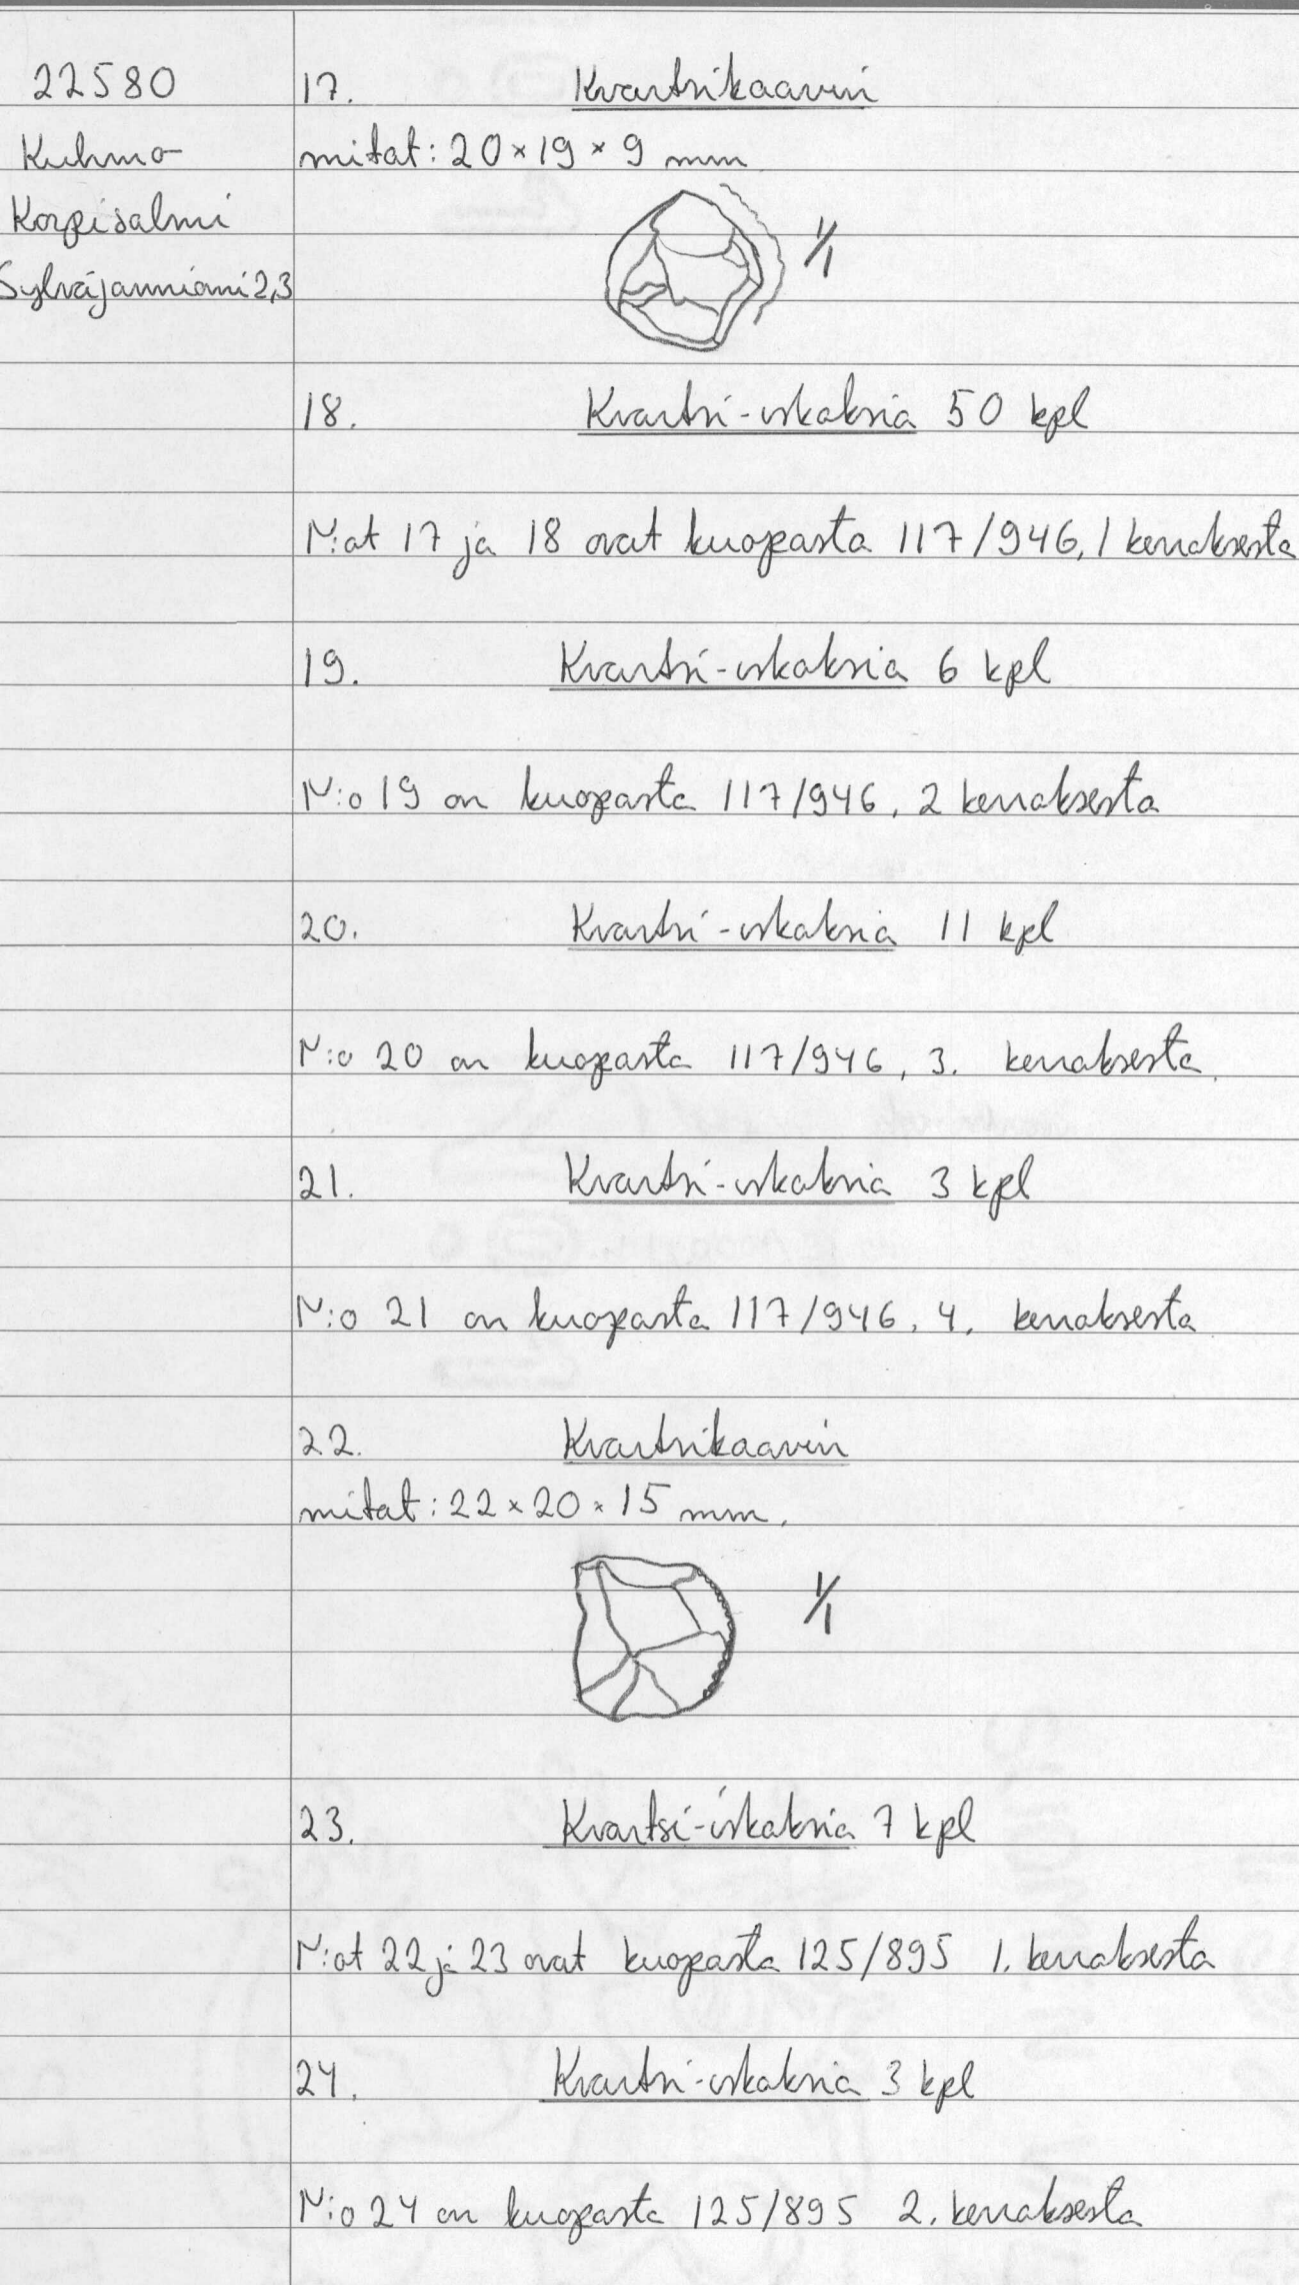 22580
Kuhmo
Korpisalmi
Sylväjänniemi 2,3
17. Kvartsikaavin
mitat: 20 × 19 × 9 mm
1/1
18. Kvartsi-iskoksia 50 kpl
N:ot 17 ja 18 ovat kuopasta 117/946, 1 kerroksesta
19. Kvartsi-iskoksia 6 kpl
N:o 19 on kuopasta 117/946, 2 kerroksesta
20. Kvartsi-iskoksia 11 kpl
N:o 20 on kuopasta 117/946, 3. kerroksesta.
21. Kvartsi-iskoksia 3 kpl
N:o 21 on kuopasta 117/946, 4. kerroksesta
22. Kvartsikaavin
mitat: 22 × 20 × 15 mm.
1/1
23. Kvartsi-iskoksia 7 kpl
N:ot 22 ja 23 ovat kuopasta 125/895 1. kerroksesta
24. Kvartsi-iskoksia 3 kpl
N:o 24 on kuopasta 125/895 2. kerroksesta